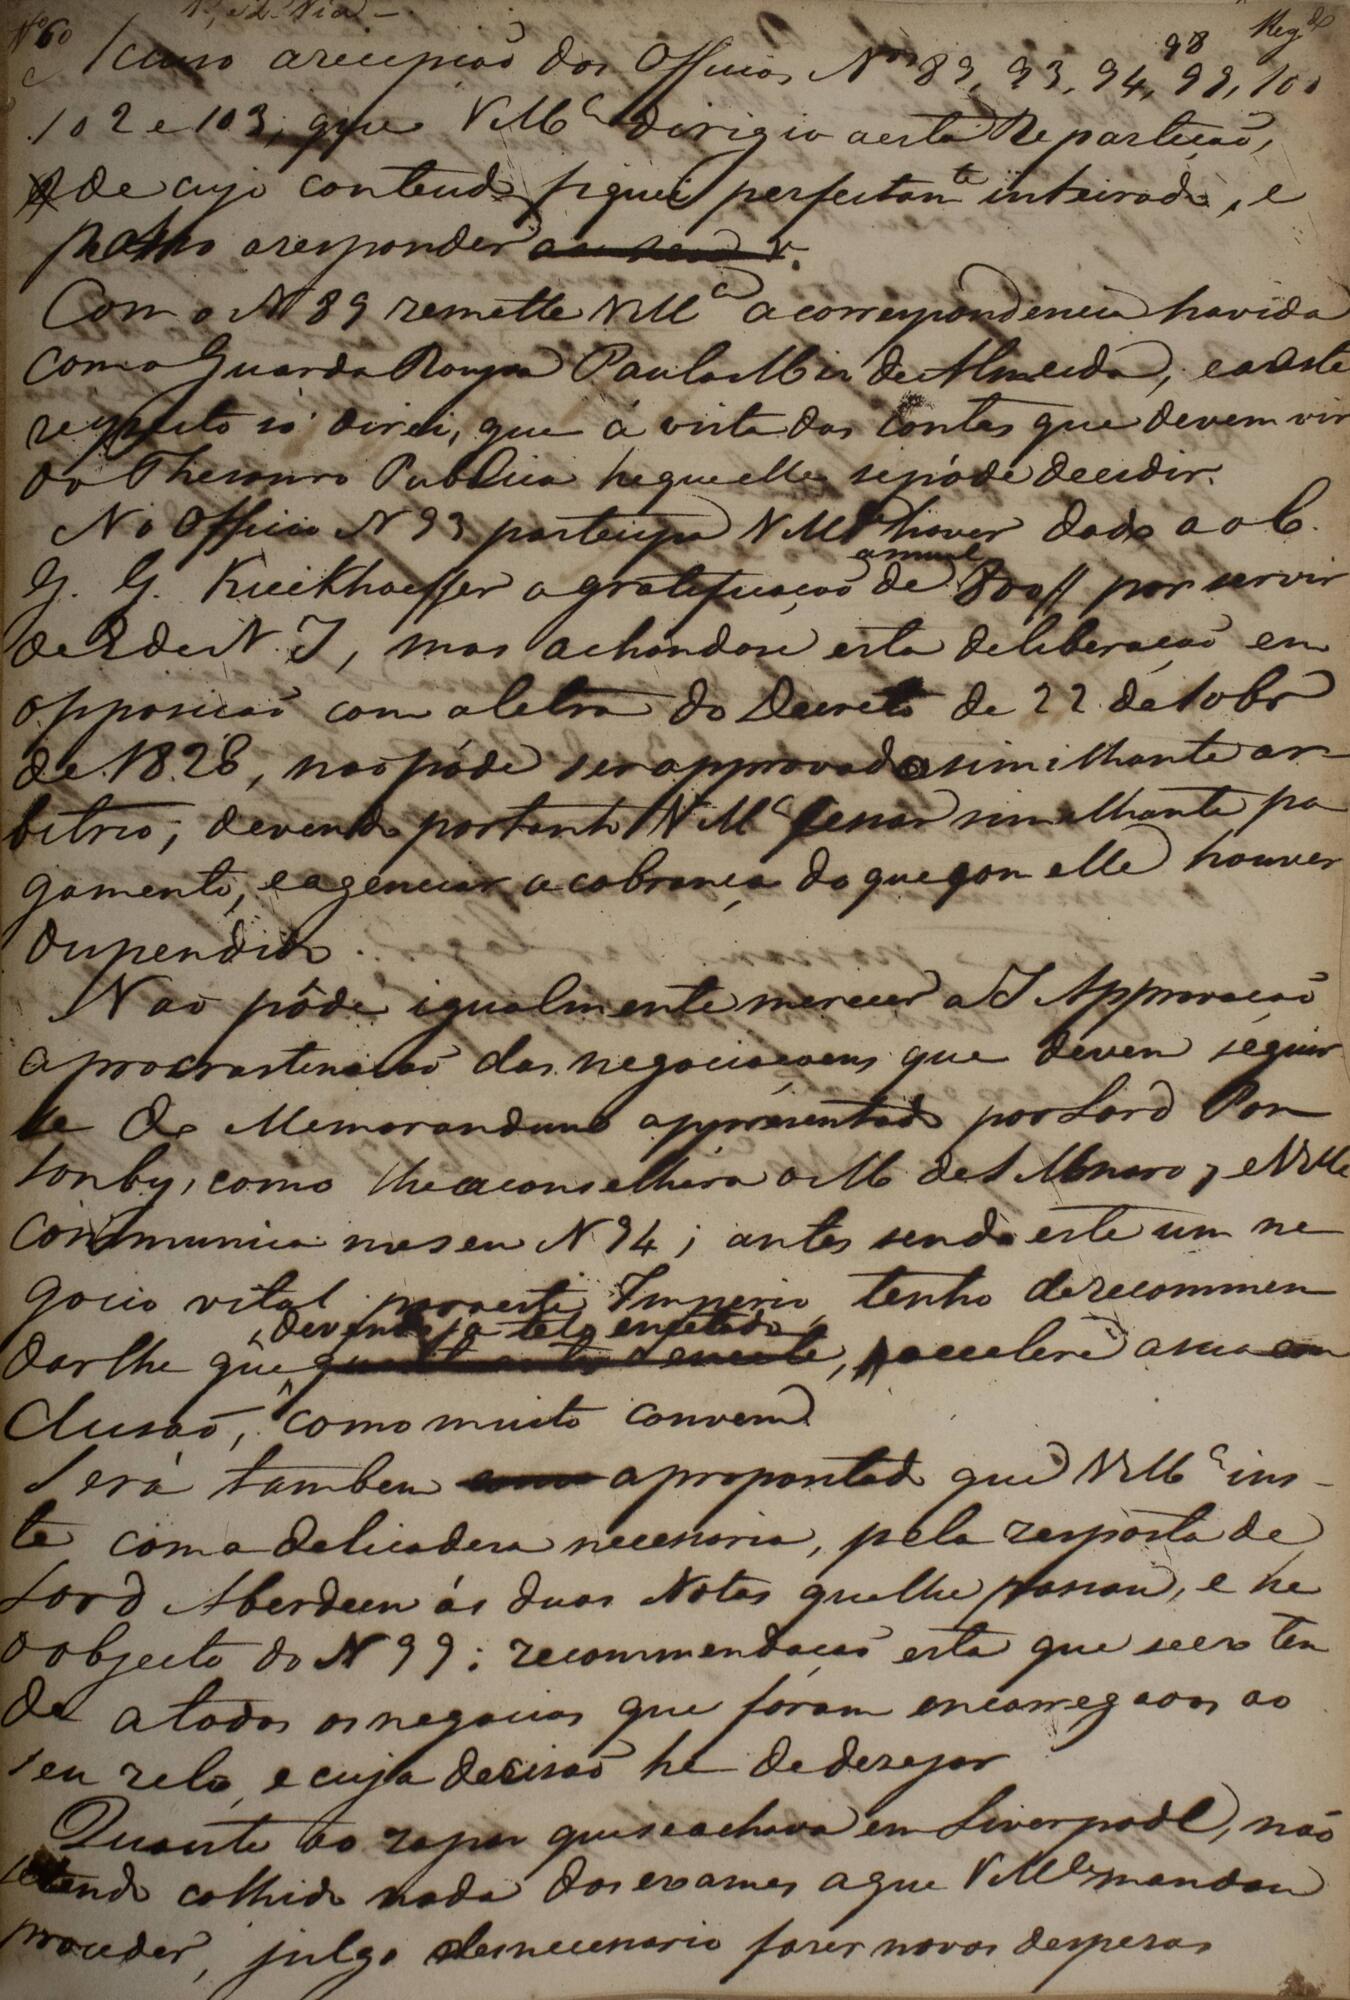 1ª, e 2ª Via –
Nº 60 Regdo
Accuso a recepção dos Officios Nos 89, 93, 94, 98, 99, 100
102 e 103, que VMce dirigio a esta Repartição,
de cujo contendo fiquei perfeitamte inteirado, e
passo a responder
Com o N 89 remette VMce a correspondencia havida
com o Guarda Roupa Paulo Miz de Almeida, e a este
respeito só direi, que á vista das contas que devem vir
do Thesouro Publico he que elle se póde decidir.
No Officio N 93 participa VMce haver dado ao C.
G. G. Kieckhoeffer a gratificação annual de 800// por servir
de E de N. I, mas achandose esta deliberação em
opposição com a letra do Decreto de 22 de 10bro
de 1828, não póde ser approvado similhante ar-
bitrio, devendo portanto VMce cessar similhante pa
gamento, e agenciar a cobrança do que con elle houver
dispendido.
Não póde igualmente merecer a I Approvação
a procrastinação das negociaçoens que devem seguir
se do Memorandum appresentado por Lord Pon
sonby, como lhe aconselhára o M de S Amaro, e VMce
communica no seu N 94; antes sendo este um ne
gocio vital para este Imperio tenho de recommen
darlhe que, devendo ja telo encetado, accelere a sua con
clusão, como muito convem
Será tambem apropositado que VMce ins-
te com a delicadeza necessaria, pela resposta de
Lord Aberdeen ás duas Notas que lhe passou, e he
o objecto do N 99: recommendação esta que se exten
de a todos os negocios que foram encarregados ao
seu zelo, e cuja decisão he de desejar
Quanto ao rapaz que se achava em Liverpool, não
se tendo colhido nada dos exames a que VMce mandou
proceder, julgo desnecessario fazer novas despezas